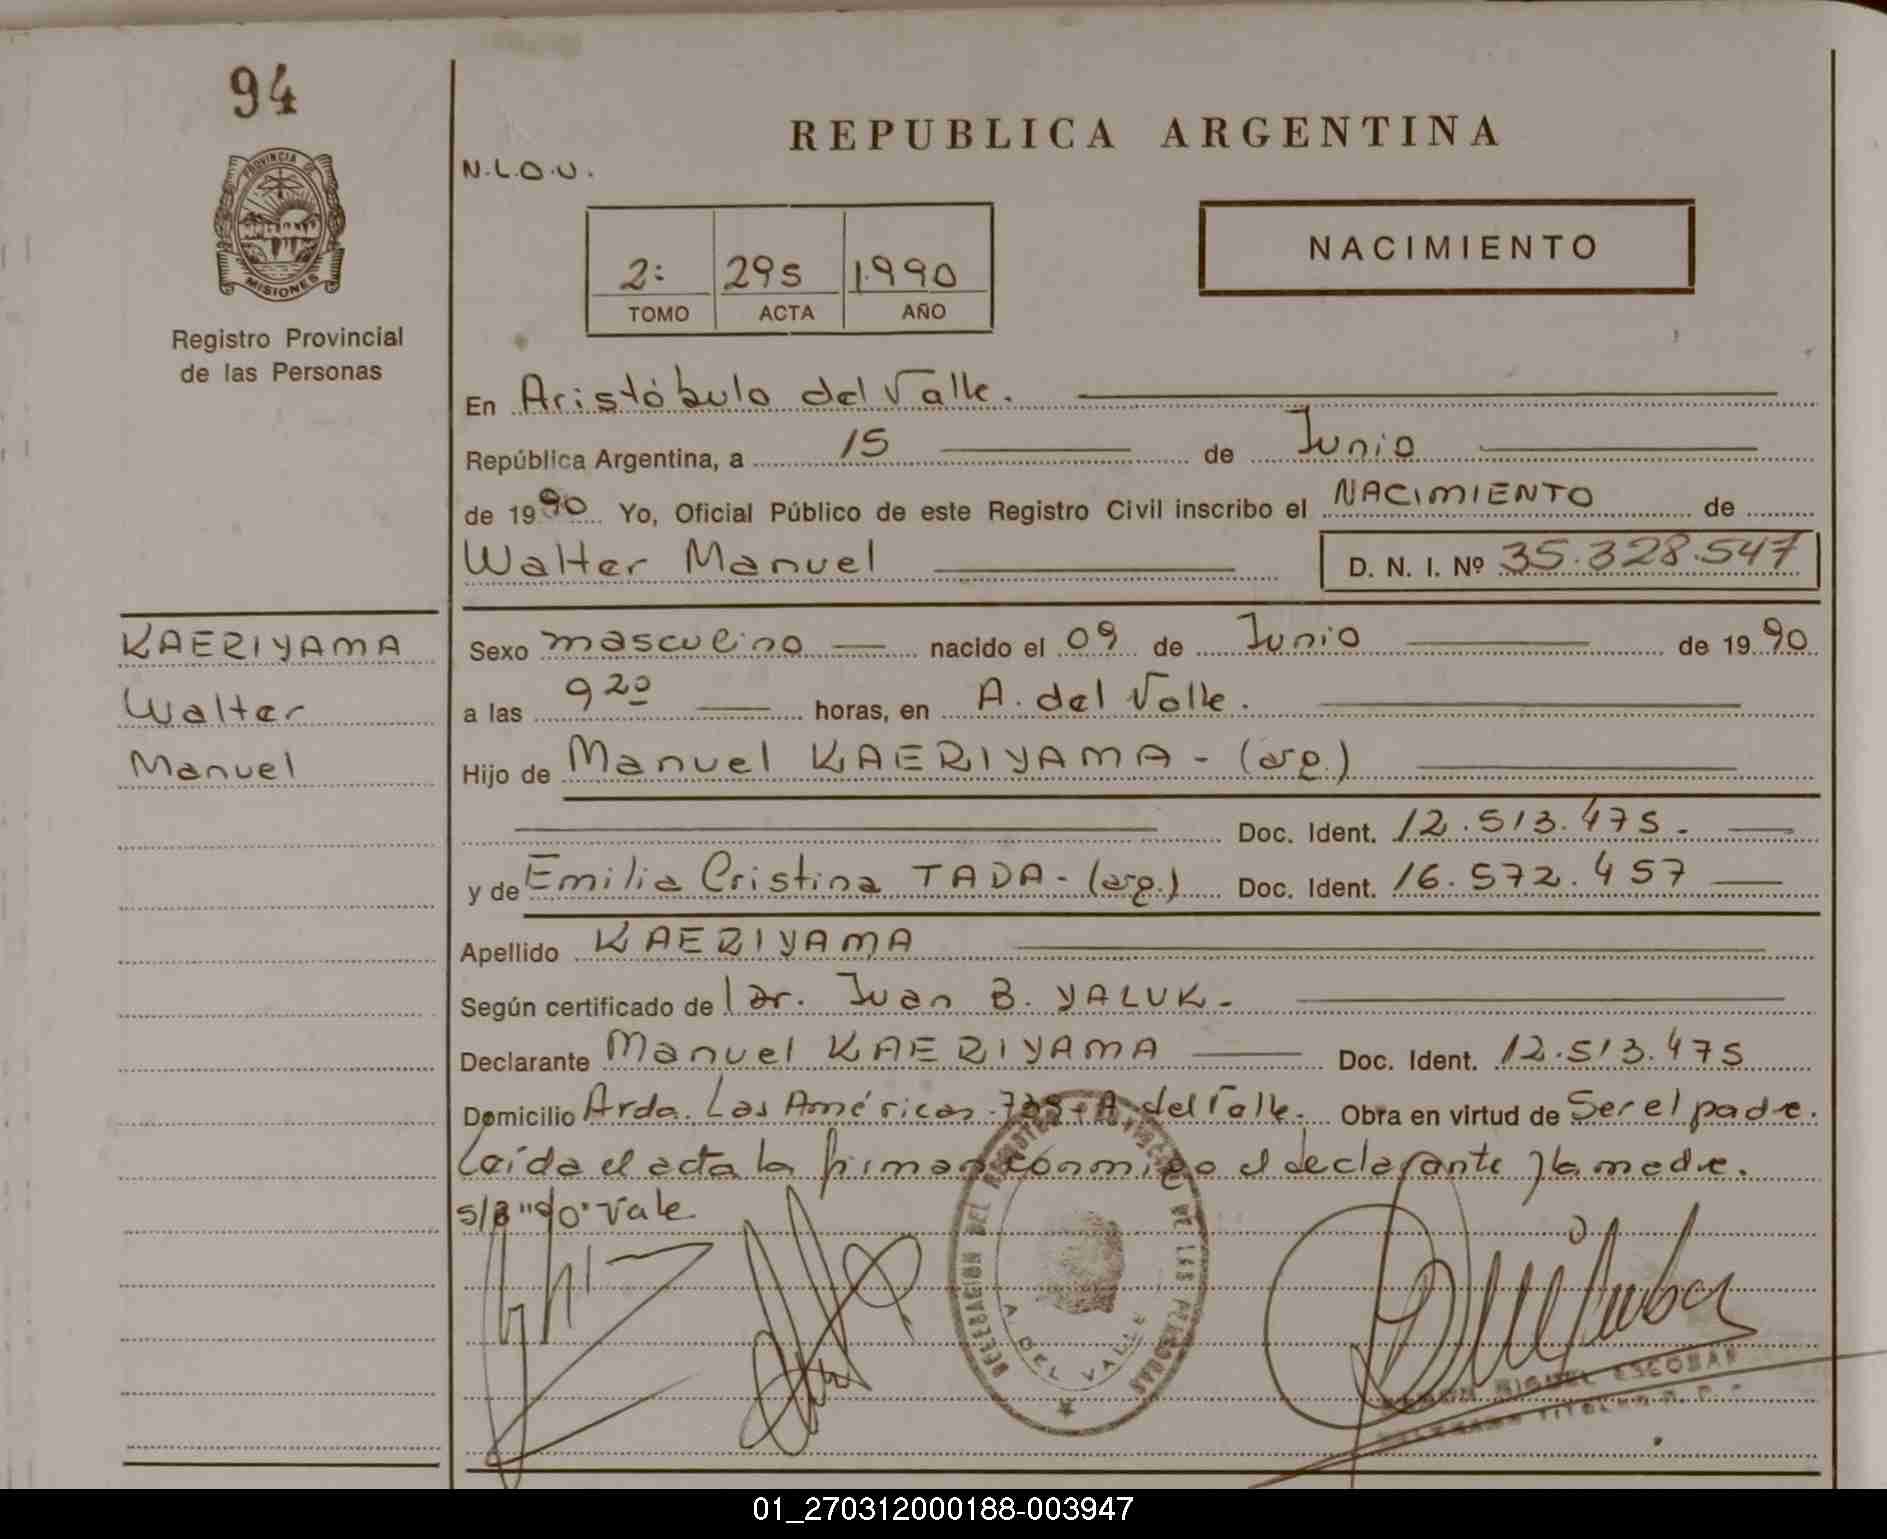 94
PROVINCIA
MISIONES
Registro Provincial
de las Personas
KAERIYAMA
Walter
Manuel
REPUBLICA ARGENTINA
N.L.O.U.
2: 295 1.990
TOMO ACTA AÑO
NACIMIENTO
En Aristóbulo del Valle.
República Argentina, a 15 de Junio
de 1990 Yo, Oficial Público de este Registro Civil inscribo el NACIMIENTO de
Walter Manuel D. N. I. Nº 35.328.547
Sexo masculino nacido el 09 de Junio de 1990
a las 9 20 horas, en A. del Valle.
Hijo de Manuel KAERIYAMA - (arg.)
Doc. Ident. 12.513.475.-
y de Emilia Cristina TADA - (arg.) Doc. Ident. 16.572.457
Apellido KAERIYAMA
Según certificado de Juan B. YALUK.-
Declarante Manuel KAERIYAMA Doc. Ident. 12.513.475
Domicilio Avda. Las Américas A del Valle. Obra en virtud de Ser el padre.
Leída el acta la firman conmigo el declarante y la madre.
s/B "90" Vale
DELEGACION DEL REGISTRO PROVINCIAL DE LAS PERSONAS
A. DEL VALLE
RAMON MIGUEL ESCOBAR
01_270312000188-003947